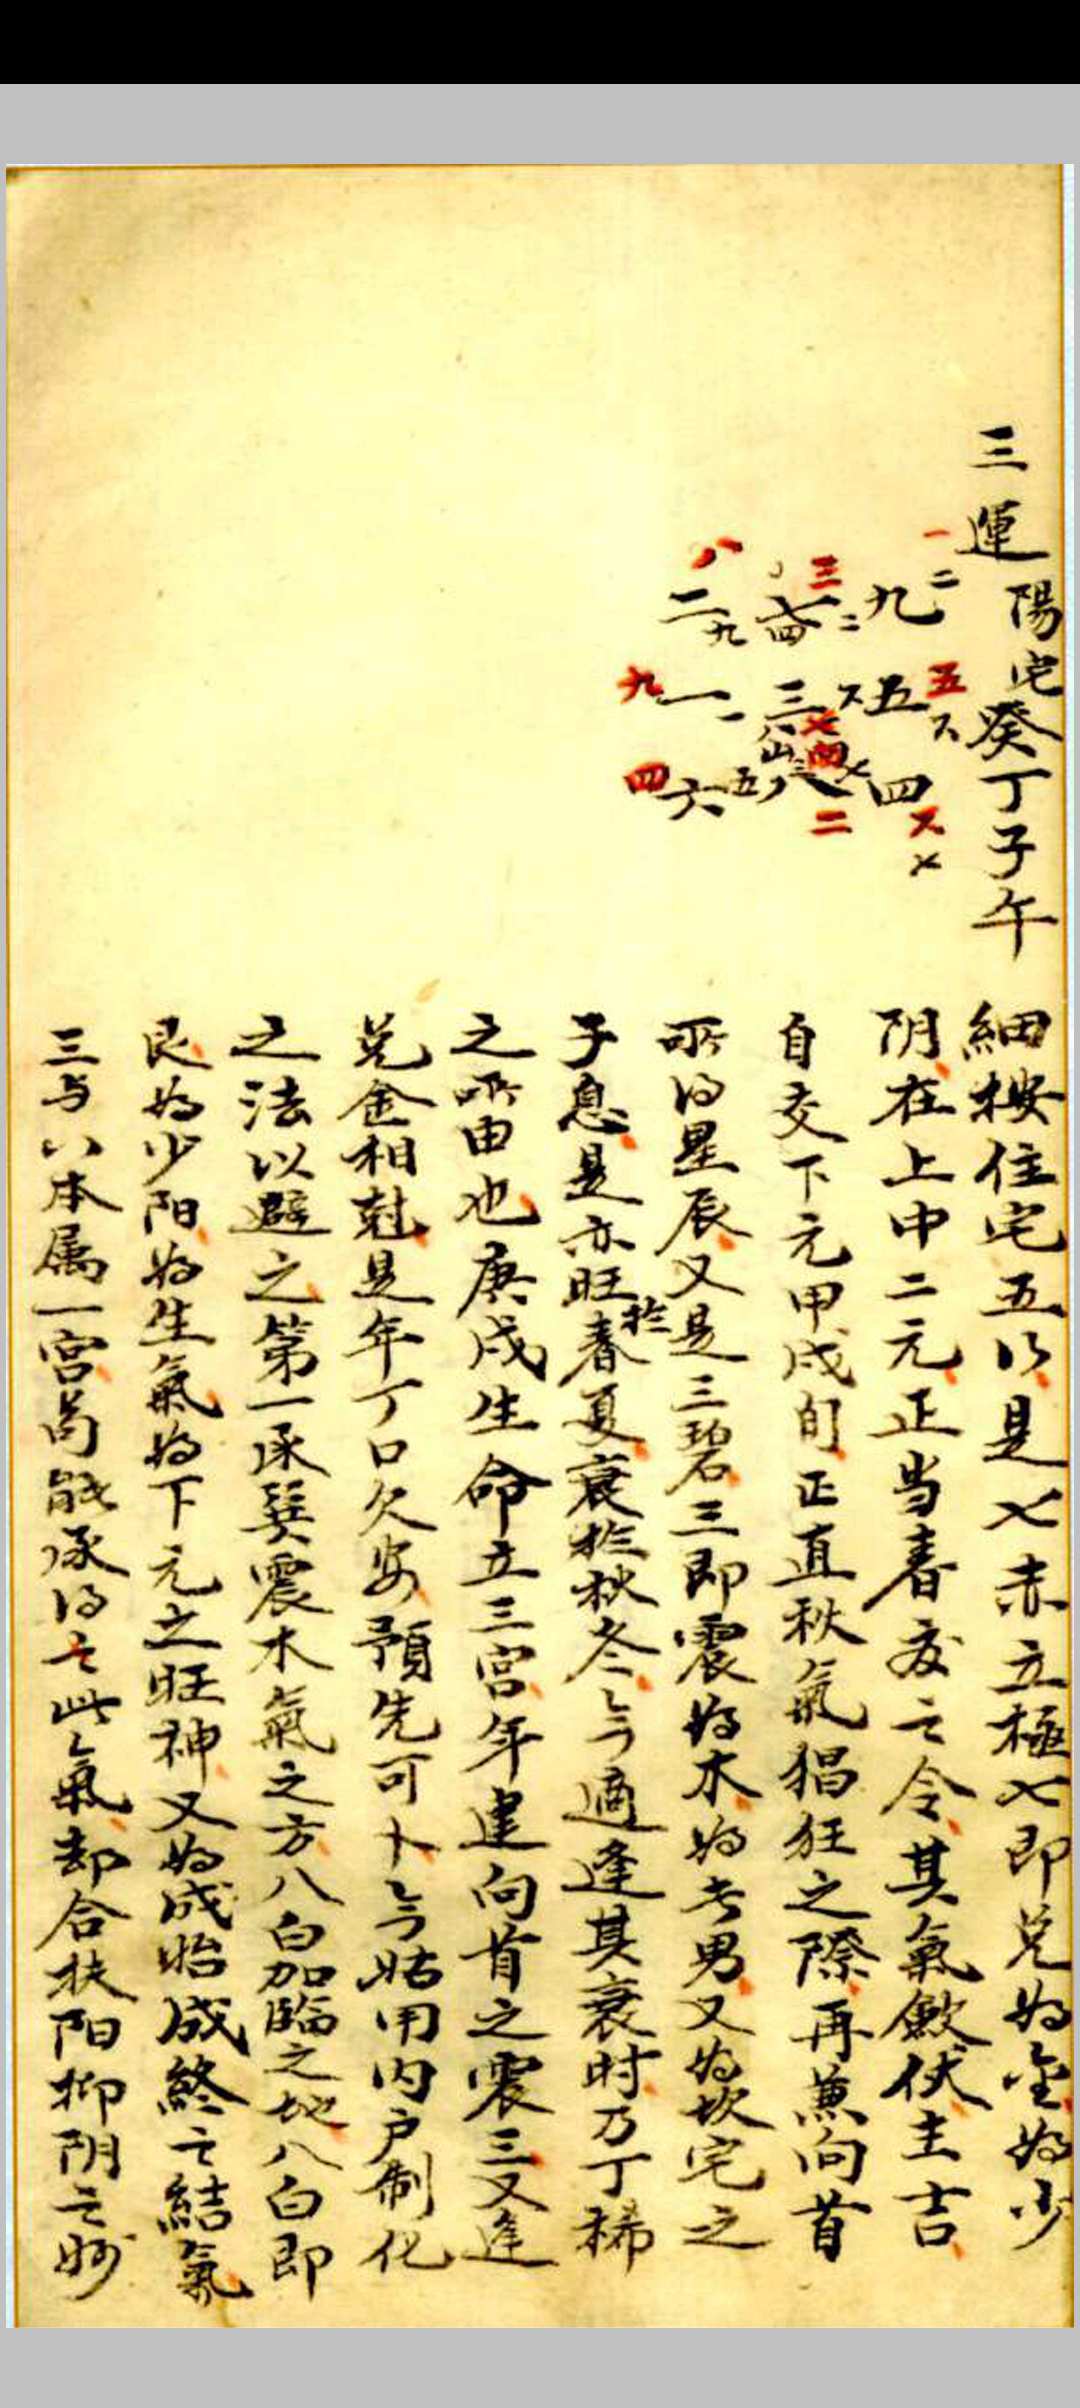 三運陽宅癸丁子午
一 二 九
三 七 四 二
八 二 九
五 五
九 一 一
三 八 山 三 七 四
四 七
二
四 六 五
細按住宅五行是七赤立極七即兌為金為少
阴在上中二元正当春夏之令其氣斂伏主吉
自交下元甲戌旬正直秋氣猖狂之際再兼向首
所得星辰又是三碧三即震為木為長男又為坎宅之
子息是亦旺於春夏衰於秋冬今適逢其衰时乃丁稀
之所由也庚戌生命立三宮年建向首之震三又逢
兌金相尅是年丁口欠安預先可卜今姑用内户制化
之法以避之第一承巽震木氣之方八白加臨之地八白即
艮為少阳為生氣為下元之旺神又為成始成終之結氣
三与八本属一宮苟能承得之此氣却合扶阳抑阴之妙